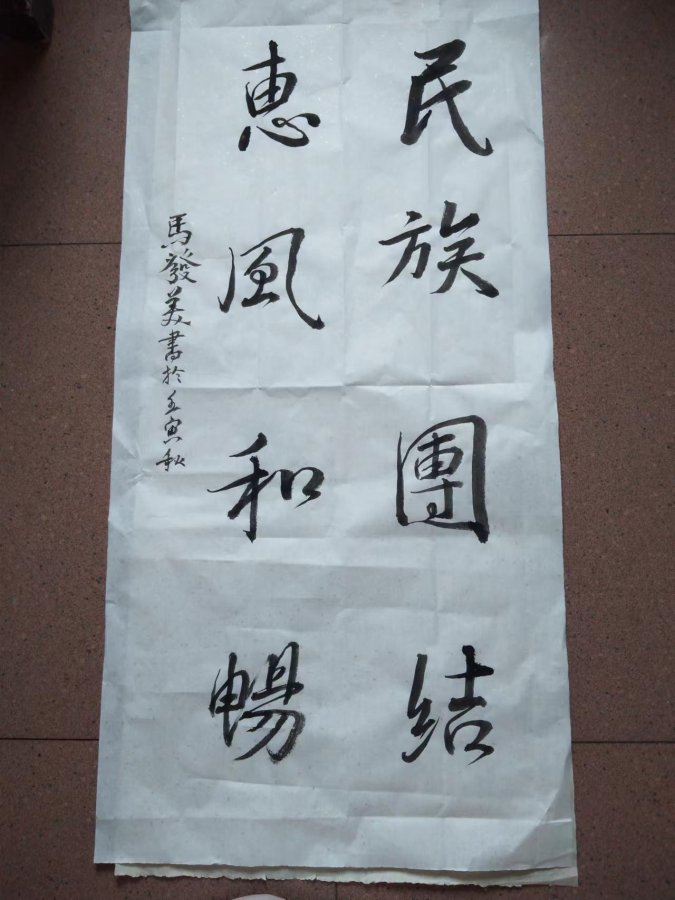 民族團結
惠風和暢
馬發美書於壬寅秋